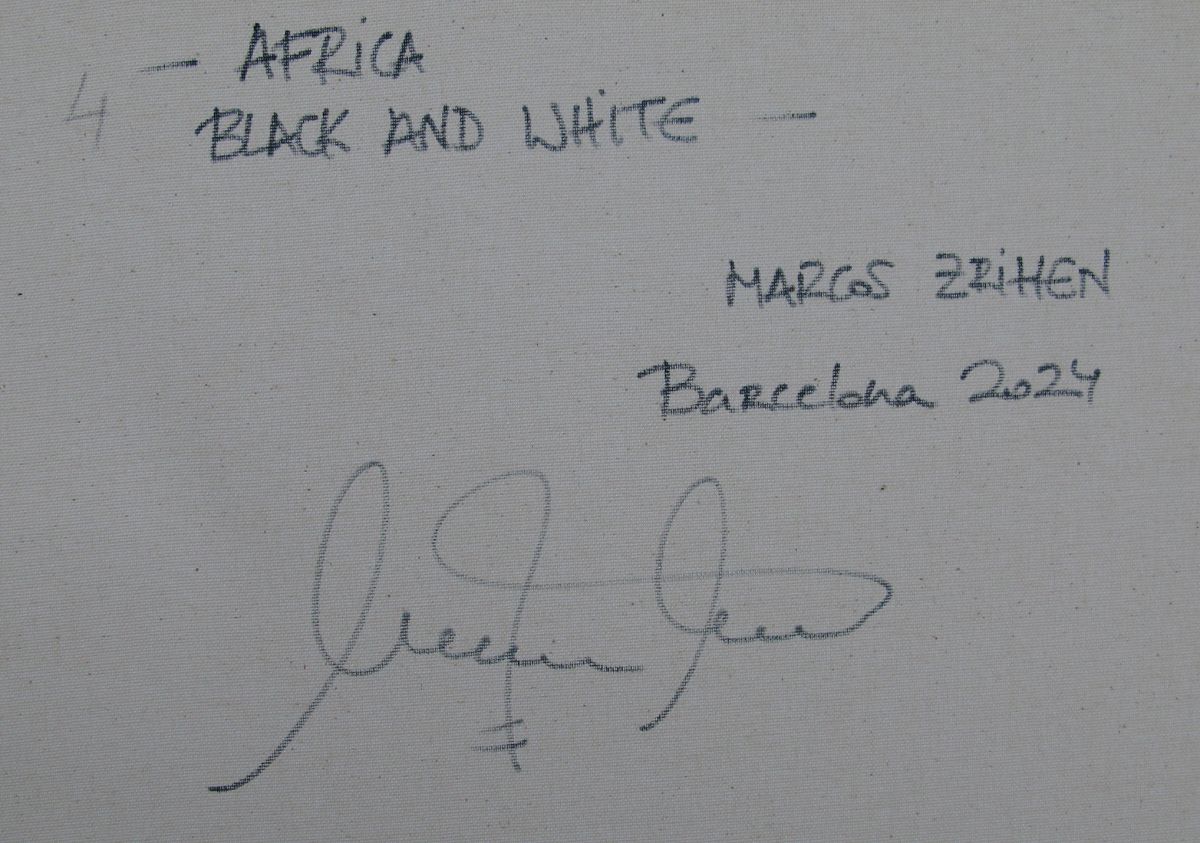 4 — AFRICA
BLACK AND WHITE —
MARCOS ZRIHEN
Barcelona 2024